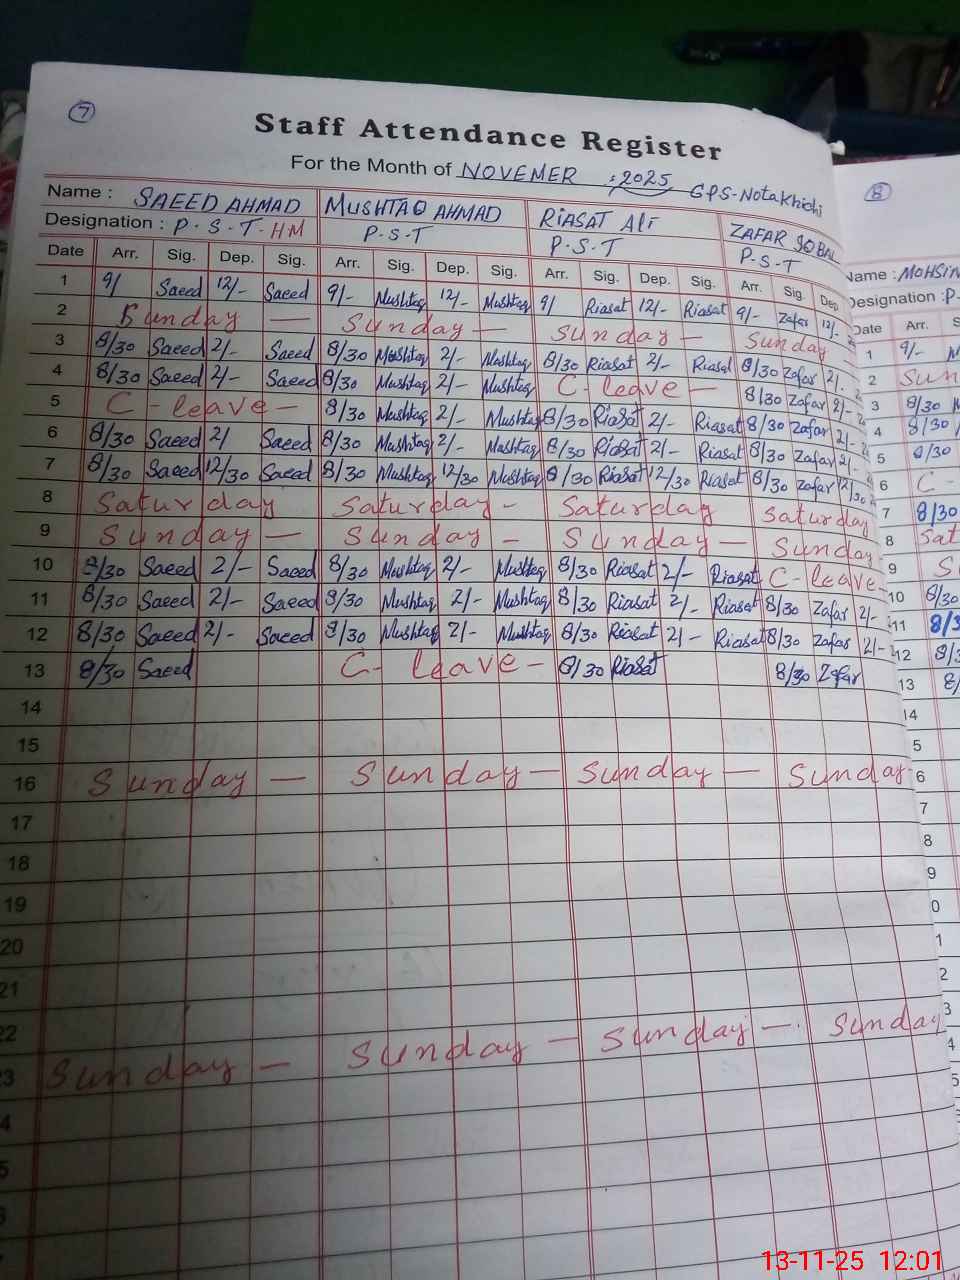 7
Staff Attendance Register
For the Month of NOVEMER : 2025 GPS-Nota Khichi
Name : SAEED AHMAD MUSHTAQ AHMAD RIASAT ALI ZAFAR IQBAL
Designation : P.S.T.HM P.S.T P.S.T P.S.T
Date Arr. Sig. Dep. Sig. Arr. Sig. Dep. Sig. Arr. Sig. Dep. Sig. Arr. Sig. Dep
1 9/ Saeed 12/- Saeed 9/- Mushtaq 12/- Mushtaq 9/ Riasat 12/- Riasat 9/- Zafar 12/-
2 Sunday — Sunday — Sunday — Sunday
3 8/30 Saeed 2/- Saeed 8/30 Mushtaq 2/- Mushtaq 8/30 Riasat 2/- Riasat 8/30 Zafar 2/-
4 8/30 Saeed 2/- Saeed 8/30 Mushtaq 2/- Mushtaq C-leave — 8/30 Zafar 2/-
5 C-leave — 8/30 Mushtaq 2/- Mushtaq 8/30 Riasat 2/- Riasat 8/30 Zafar 2/-
6 8/30 Saeed 2/ Saeed 8/30 Mushtaq 2/- Mushtaq 8/30 Riasat 2/- Riasat 8/30 Zafar 2/-
7 8/30 Saeed 12/30 Saeed 8/30 Mushtaq 12/30 Mushtaq 8/30 Riasat 12/30 Riasat 8/30 Zafar 12/30
8 Saturday Saturday - Saturday Saturday
9 Sunday — Sunday - Sunday — Sunday
10 8/30 Saeed 2/- Saeed 8/30 Mushtaq 2/- Mushtaq 8/30 Riasat 2/- Riasat C-leave-
11 8/30 Saeed 2/- Saeed 8/30 Mushtaq 2/- Mushtaq 8/30 Riasat 2/- Riasat 8/30 Zafar 2/-
12 8/30 Saeed 2/- Saeed 8/30 Mushtaq 2/- Mushtaq 8/30 Riasat 2/- Riasat 8/30 Zafar 2/-
13 8/30 Saeed C-leave- 8/30 Riasat 8/30 Zafar
14
15
16 Sunday — Sunday — Sunday — Sunday-
17
18
19
20
21
22
3 Sunday — Sunday — Sunday — Sunday
4
5
8
Name : MOHSIN
Designation :P-
Date Arr. S
1 9/-
2 Sun
3 8/30
4 8/30
5 8/30
6 C-
7 8/30
8 Sat
9 S
10 8/30
11 8/3
12 8/3
13 8/
14
5
6
7
8
9
0
1
2
3
4
5
13-11-25 12:01